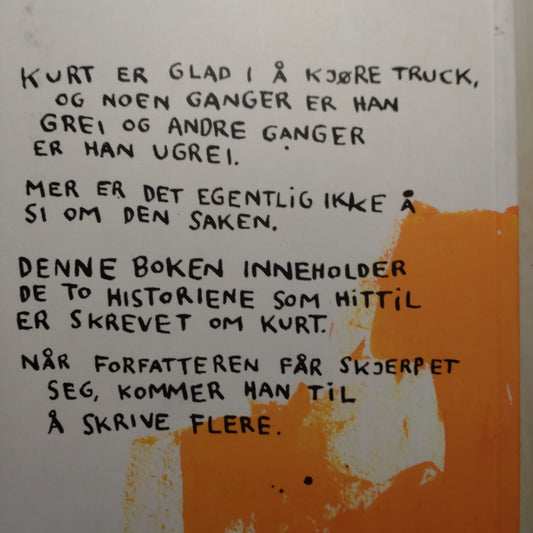 KURT ER GLAD I Å KJØRE TRUCK,
OG NOEN GANGER ER HAN
GREI OG ANDRE GANGER
ER HAN UGREI.
MER ER DET EGENTLIG IKKE Å
SI OM DEN SAKEN.
DENNE BOKEN INNEHOLDER
DE TO HISTORIENE SOM HITTIL
ER SKREVET OM KURT.
NÅR FORFATTEREN FÅR SKJERPET
SEG, KOMMER HAN TIL
Å SKRIVE FLERE.